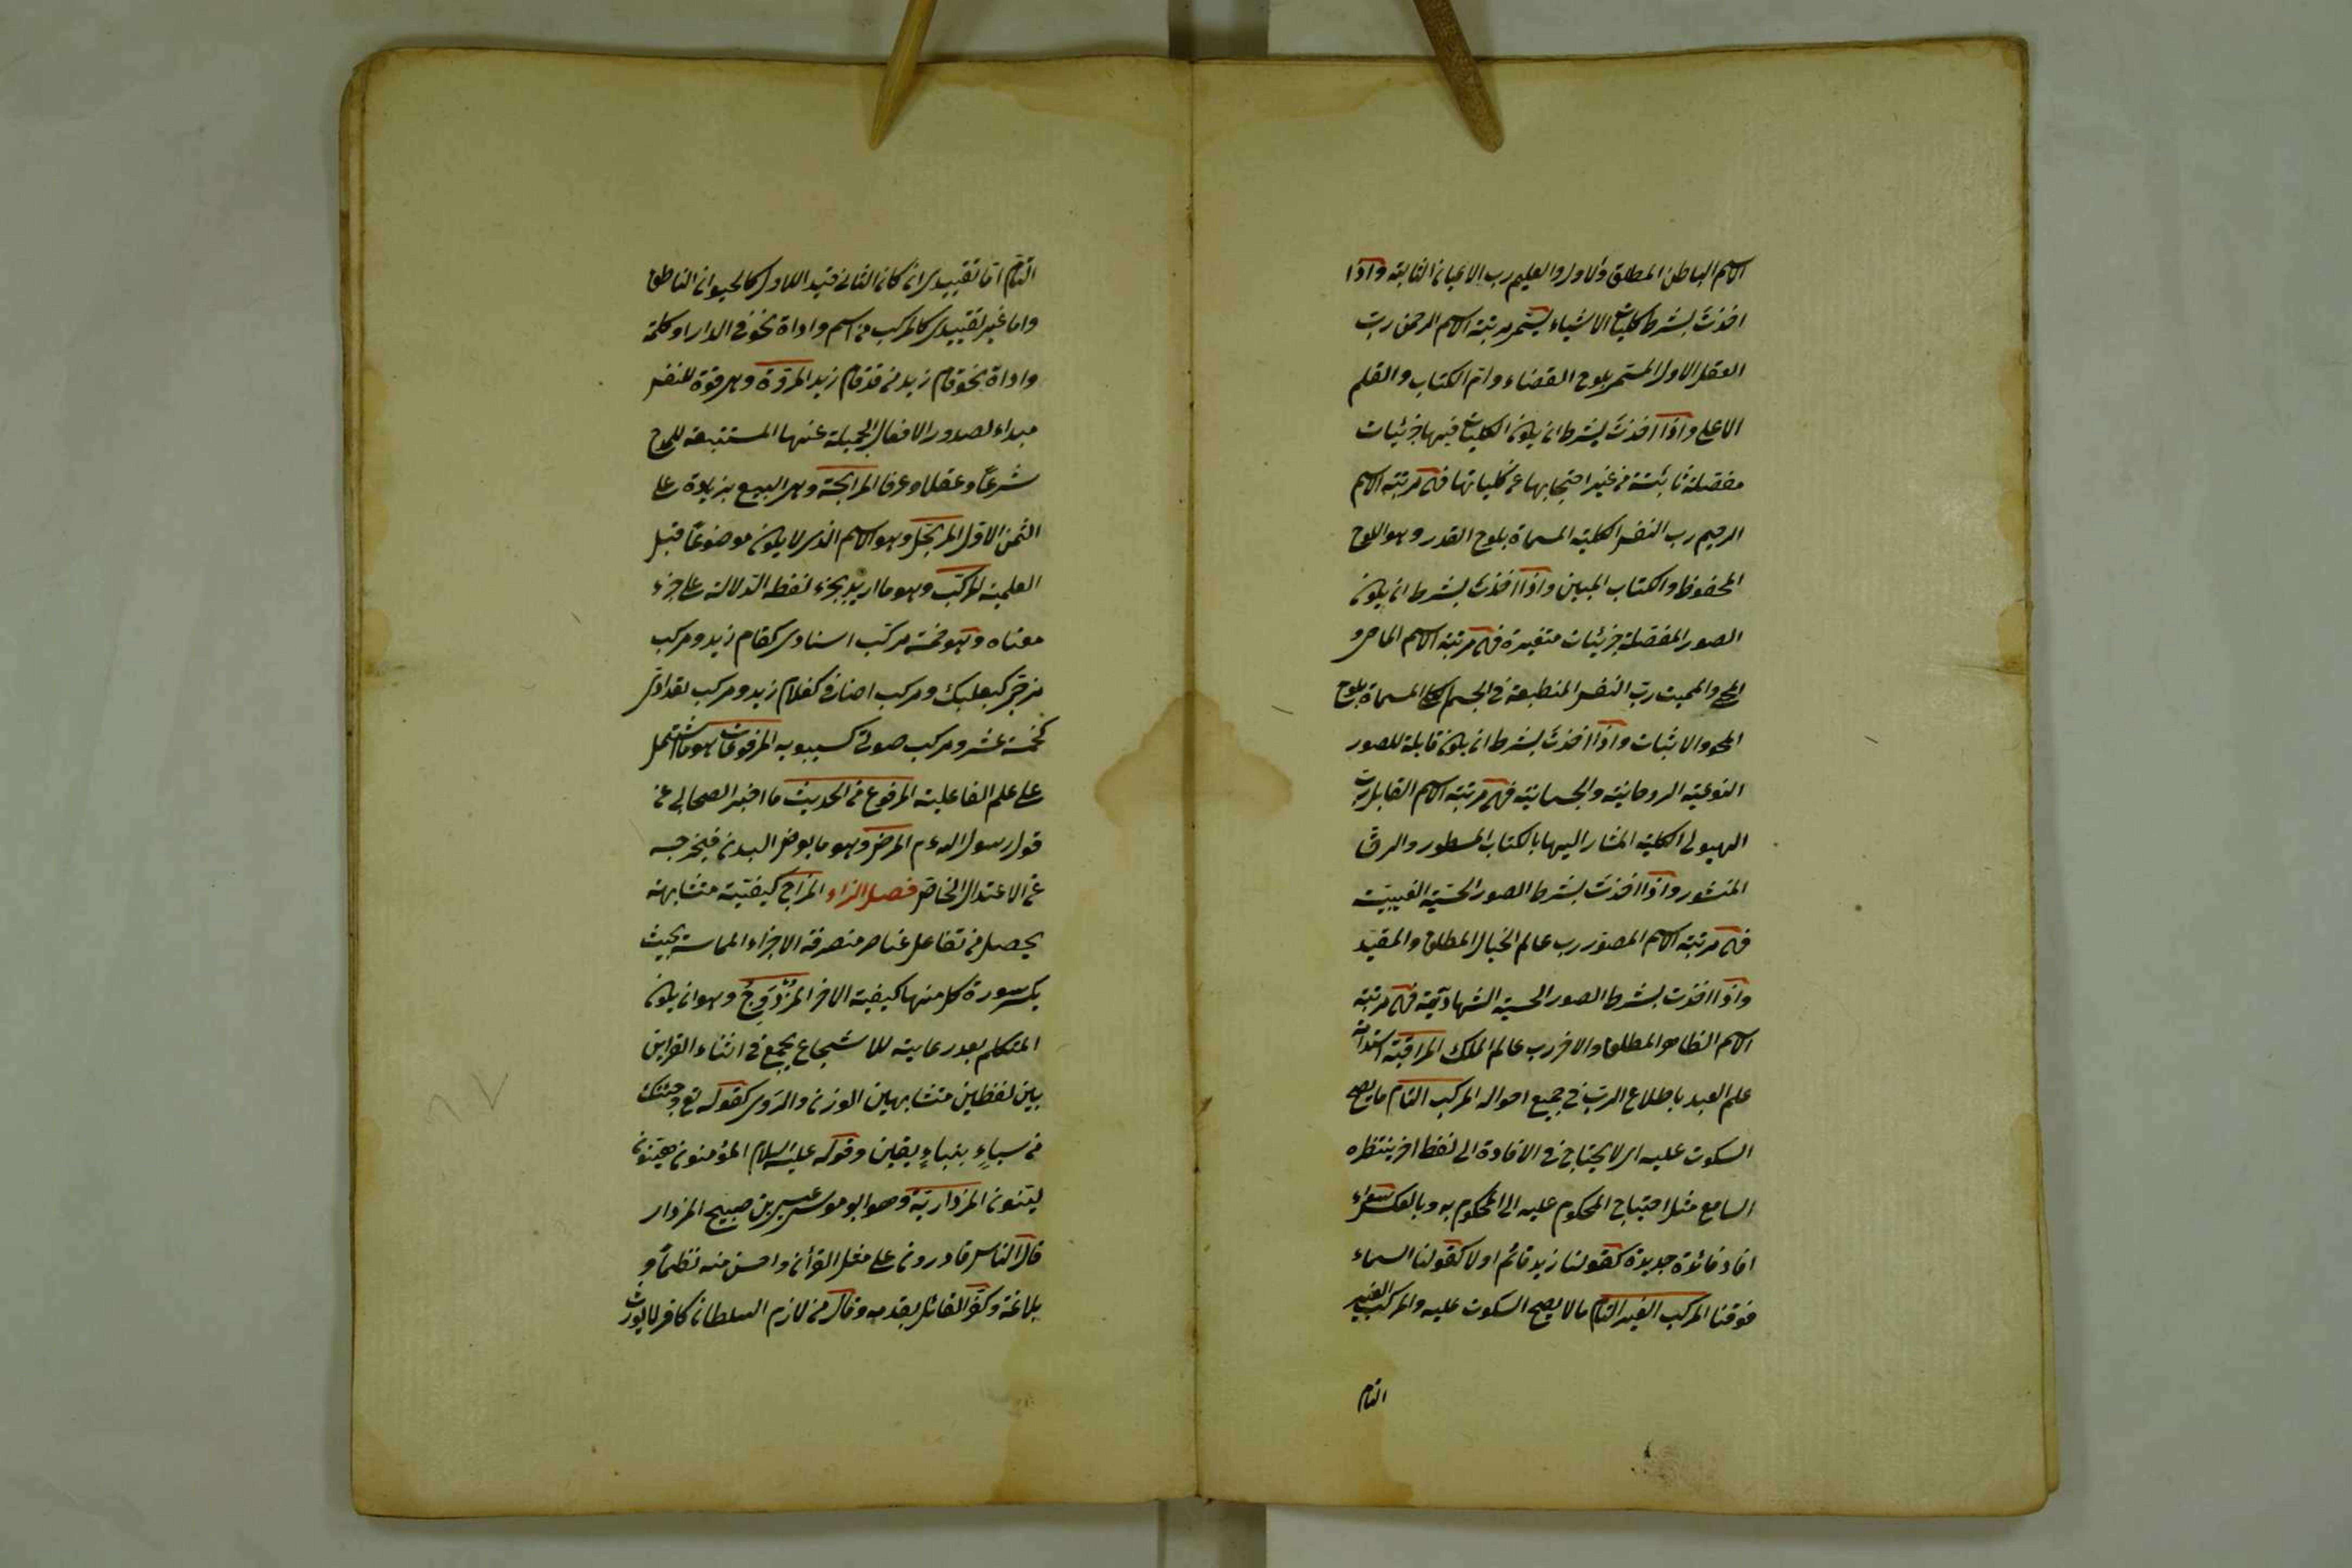 الاسم الباطن المطلق والاول والعليم رب الاعيان الثابتة واذا
اخذت بشرط كليات الاشياء يستمر مرتبة الاسم الرحمن رب
العقل الاول المستمر بلوح القضاء وام الكتاب والقلم
الاعلى واذا اخذت بشرط ان يكون الكليات فيها جزئيات
مفصلة ثابتة من غير احتجابها عن كلياتها فهى مرتبة الاسم
الرحيم رب النفس الكلية المسماة بلوح القدر وهو اللوح
المحفوظ والكتاب المبين واذا اخذت بشرط ان يكون
الصور المفصلة جزئيات متغيرة فهى مرتبة الاسم الماحى و
المحى والمميت رب النفس المنطبعة فى الجسم الكلى المسماة بلوح
المحو والاثبات واذا اخذت بشرط ان يكون قابلة للصور
النوعية الروحانية والجسمانية فهى مرتبة الاسم القابل رب
الهيولى الكلية المشار اليها بالكتاب المسطور والرق
المنشور واذا اخذت بشرط الصور الحسية الغيبية
فهى مرتبة الاسم المصور رب عالم الخيال المطلق والمقيد
واذا اخذت بشرط الصور الحسية الشهادتية فهى مرتبة
الاسم الظاهر المطلق والاخر رب عالم الملك المراقبة استدامة
علم العبد باطلاع الرب فى جميع احواله المركب التام ما يصح
السكوت عليه اى لا يحتاج فى الافادة الى لفظ اخر ينتظره
السامع مثل احتياج المحكوم عليه الى المحكوم به وبالعكس سواء
افاد فائدة جديدة كقولنا زيد قائم او لا كقولنا السماء
فوقنا المركب الغير التام ما لا يصح السكوت عليه والمركب الغير
التام
التام اما تقييدى ان كان الثانى قيد اللاول كالحيوان الناطق
واما غير تقييدى كالمركب من اسم واداة نحو فى الدار او كلمة
واداة نحو قام زيد من قد قام زيد المروة وهى قوة للنفس
مبداء لصدور الافعال الجميلة عنها المستتبعة للمدح
شرعا وعقلا وعرفا المرابحة وهى البيع بزيادة على
الثمن الاول المرتجل وهو الاسم الذى لا يكون موضوعا قبل
العلمية المركب وهو ما اريد بجزء لفظه الدلالة على جزء
معناه وهو خمسة مركب اسنادى كقام زيد ومركب
مزجى كبعلبك ومركب اضافى كغلام زيد ومركب تعدادى
كخمسة عشر ومركب صوتى كسيبويه المرفوعات هو ما اشتمل
على علم الفاعلية المرفوع من الحديث ما اخبر الصحابى عن
قول رسول الله ءم المرض وهو ما يعرض البدن فيخرجه
عن الاعتدال الخاص فصل الزاء المزاج كيفية متشابهة
يحصل من تفاعل عناصر منصرفة الاجزاء المماسة بحيث
يكسر سورة كل منها كيفية الاخر المزدوج وهو ان يكون
المتكلم بعد رعايته للاسجاع يجمع فى اثناء القراين
بين لفظين متشابهين الوزن والروى كقوله تع وجئتك
من سباءٍ بنباءٍ يقين وقوله عليه السلام المؤمنون هينون
لينون المزدارية وهو ابو موسى عيسى بن صبيح المزدار
قال الناس قادرون على مثل القرأن واحسن منه نظما و
بلاغة وكفر القائل بقدمه وقال من لازم السلطان كافر لا يورث